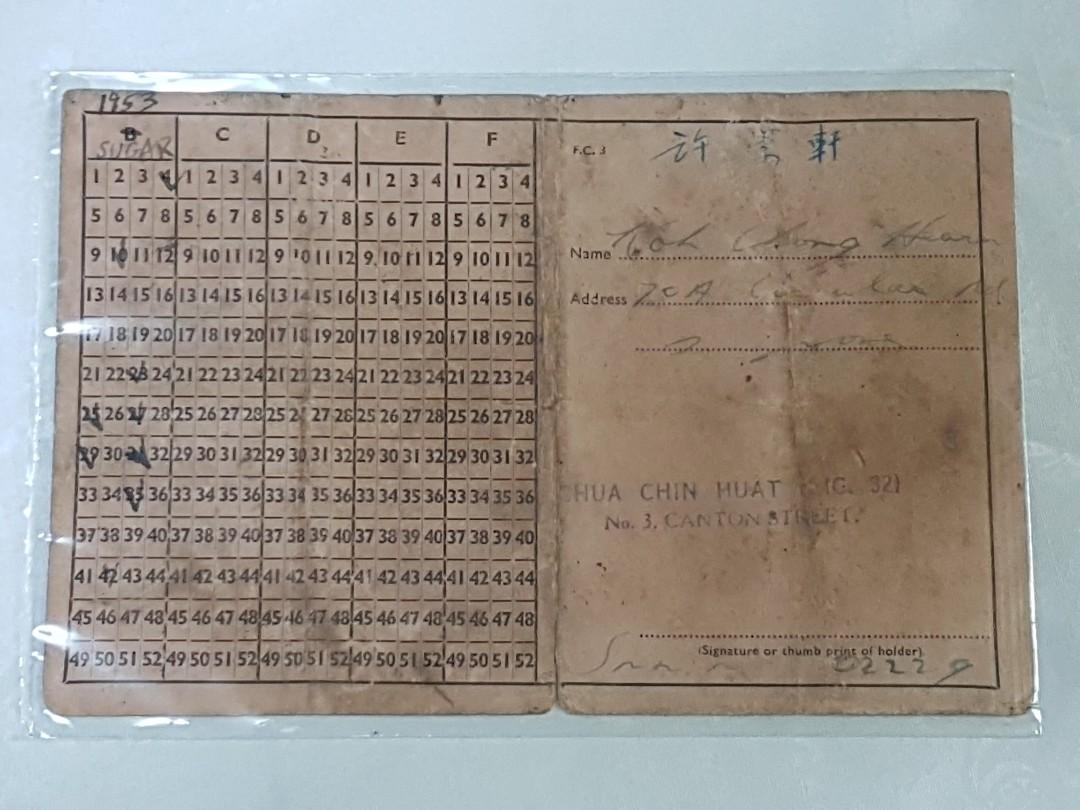 1953
B C D E F
SUGAR
1 2 3 4 1 2 3 4 1 2 3 4 1 2 3 4 1 2 3 4
5 6 7 8 5 6 7 8 5 6 7 8 5 6 7 8 5 6 7 8
9 10 11 12 9 10 11 12 9 10 11 12 9 10 11 12 9 10 11 12
13 14 15 16 13 14 15 16 13 14 15 16 13 14 15 16 13 14 15 16
17 18 19 20 17 18 19 20 17 18 19 20 17 18 19 20 17 18 19 20
21 22 23 24 21 22 23 24 21 22 23 24 21 22 23 24 21 22 23 24
25 26 27 28 25 26 27 28 25 26 27 28 25 26 27 28 25 26 27 28
29 30 31 32 29 30 31 32 29 30 31 32 29 30 31 32 29 30 31 32
33 34 35 36 33 34 35 36 33 34 35 36 33 34 35 36 33 34 35 36
37 38 39 40 37 38 39 40 37 38 39 40 37 38 39 40 37 38 39 40
41 42 43 44 41 42 43 44 41 42 43 44 41 42 43 44 41 42 43 44
45 46 47 48 45 46 47 48 45 46 47 48 45 46 47 48 45 46 47 48
49 50 51 52 49 50 51 52 49 50 51 52 49 50 51 52 49 50 51 52
F.C. 3
許 軒
Name Koh Chong
Address
CHUA CHIN HUAT (G. 32)
No. 3, CANTON STREET.
(Signature or thumb print of holder)